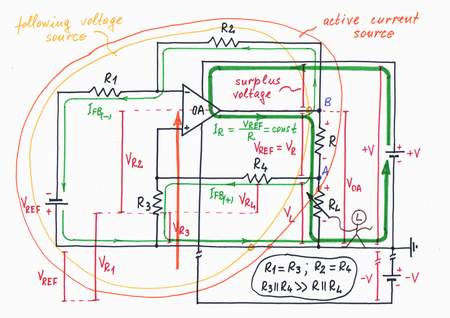 following voltage
source
active current
source
R2
R1
surplus
voltage
IFB(-)
OA
B
IR = VREF/R = const
VREF = VR
R
+V
VR2
A
R4
VREF
R3
IFB(+)
VR4
VL
RL
VOA
L
VR3
VR1
VREF
R1 = R3 ; R2 = R4
R3||R4 >> R||RL
-V